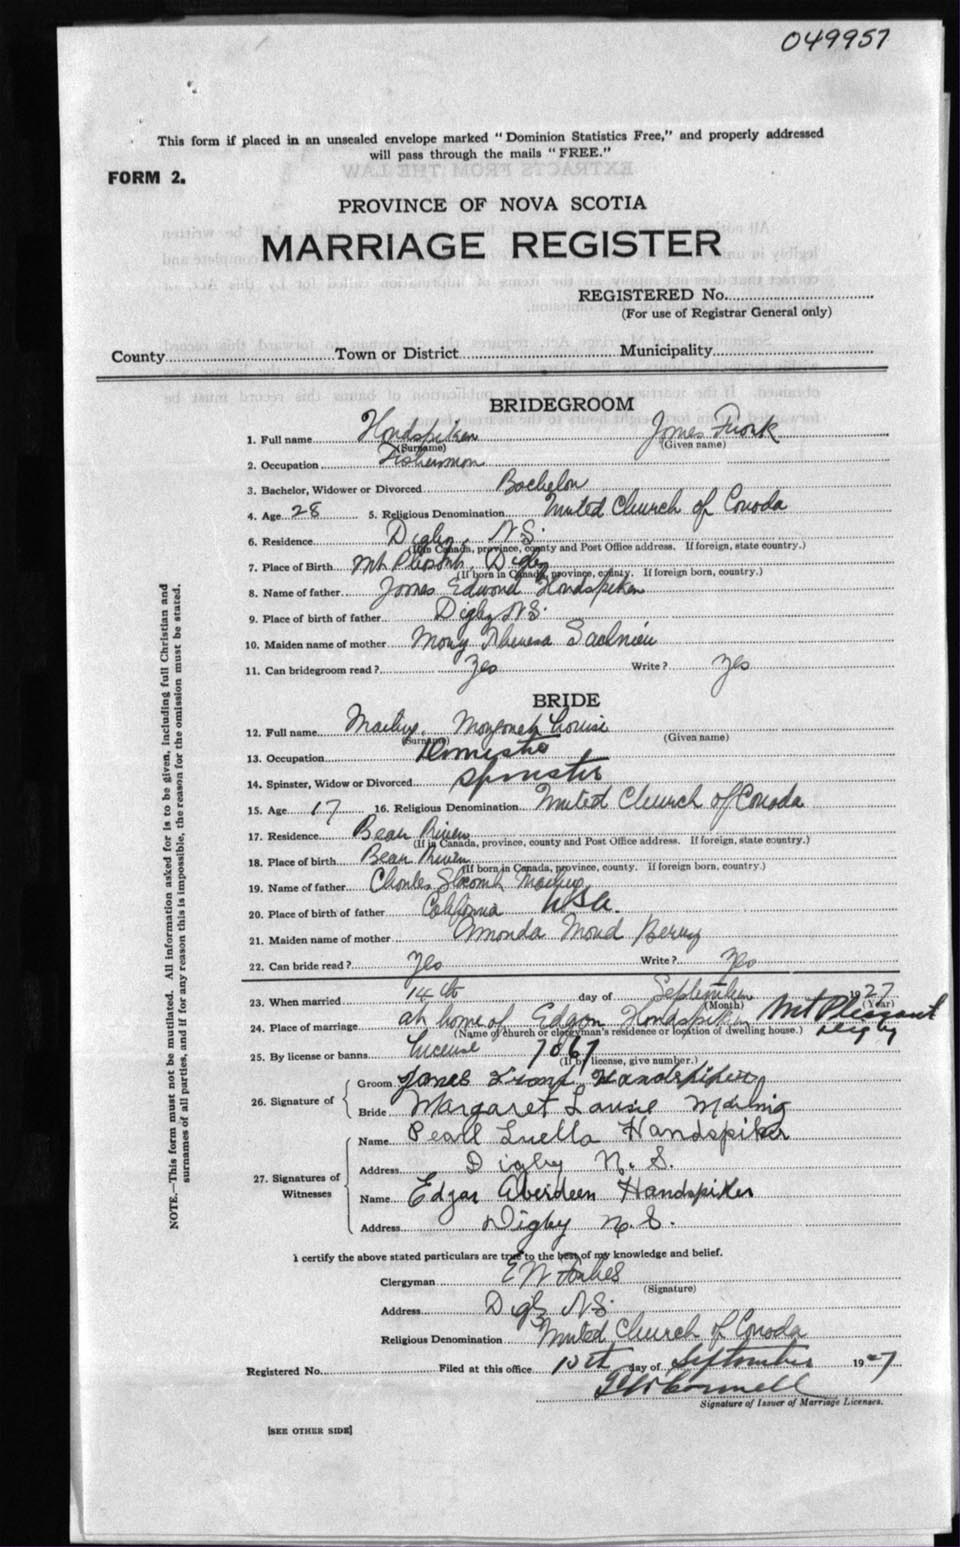 049957
This form if placed in an unsealed envelope marked "Dominion Statistics Free," and properly addressed
will pass through the mails "FREE."
FORM 2.
PROVINCE OF NOVA SCOTIA
MARRIAGE REGISTER
REGISTERED No.
(For use of Registrar General only)
County Town or District Municipality
BRIDEGROOM
1. Full name Handspiker James Frank
(Surname) (Given name)
2. Occupation Fisherman
3. Bachelor, Widower or Divorced Bachelor
4. Age 28 5. Religious Denomination United Church of Canada
6. Residence Digby, N.S.
(If in Canada, province, county and Post Office address. If foreign, state country.)
7. Place of Birth Mt. Pleasant, Digby
(If born in Canada, province, county. If foreign born, country.)
8. Name of father James Edward Handspiker
9. Place of birth of father Digby N.S.
10. Maiden name of mother Mary Theresa
11. Can bridegroom read? Yes Write? Yes
BRIDE
12. Full name Margaret Louise
(Surname) (Given name)
13. Occupation Domestic
14. Spinster, Widow or Divorced Spinster
15. Age 17 16. Religious Denomination United Church of Canada
17. Residence Bear River
(If in Canada, province, county and Post Office address. If foreign, state country.)
18. Place of birth Bear River
(If born in Canada, province, county. If foreign born, country.)
19. Name of father Charles
20. Place of birth of father California U.S.A.
21. Maiden name of mother Amanda Maud Berry
22. Can bride read? Yes Write? Yes
23. When married 14th day of September 1927
(Month) (Year)
24. Place of marriage at home of Edgar Handspiker Mt Pleasant
Digby
(Name of church or clergyman's residence or location of dwelling house.)
25. By license or banns License 7067
(If by license, give number.)
26. Signature of
Groom James Frank Handspiker
Bride Margaret Louise
27. Signatures of
Witnesses
Name Pearl Luella Handspiker
Address Digby N. S.
Name Edgar Aberdeen Handspiker
Address Digby N.S.
I certify the above stated particulars are true to the best of my knowledge and belief.
Clergyman E W Forbes
(Signature)
Address Digby N.S.
Religious Denomination United Church of Canada
Registered No. Filed at this office 15th day of September 1927
Signature of Issuer of Marriage Licenses.
[SEE OTHER SIDE]
NOTE.—This form must not be mutilated. All information asked for is to be given, including full Christian and
surnames of all parties, and if for any reason this is impossible, the reason for the omission must be stated.